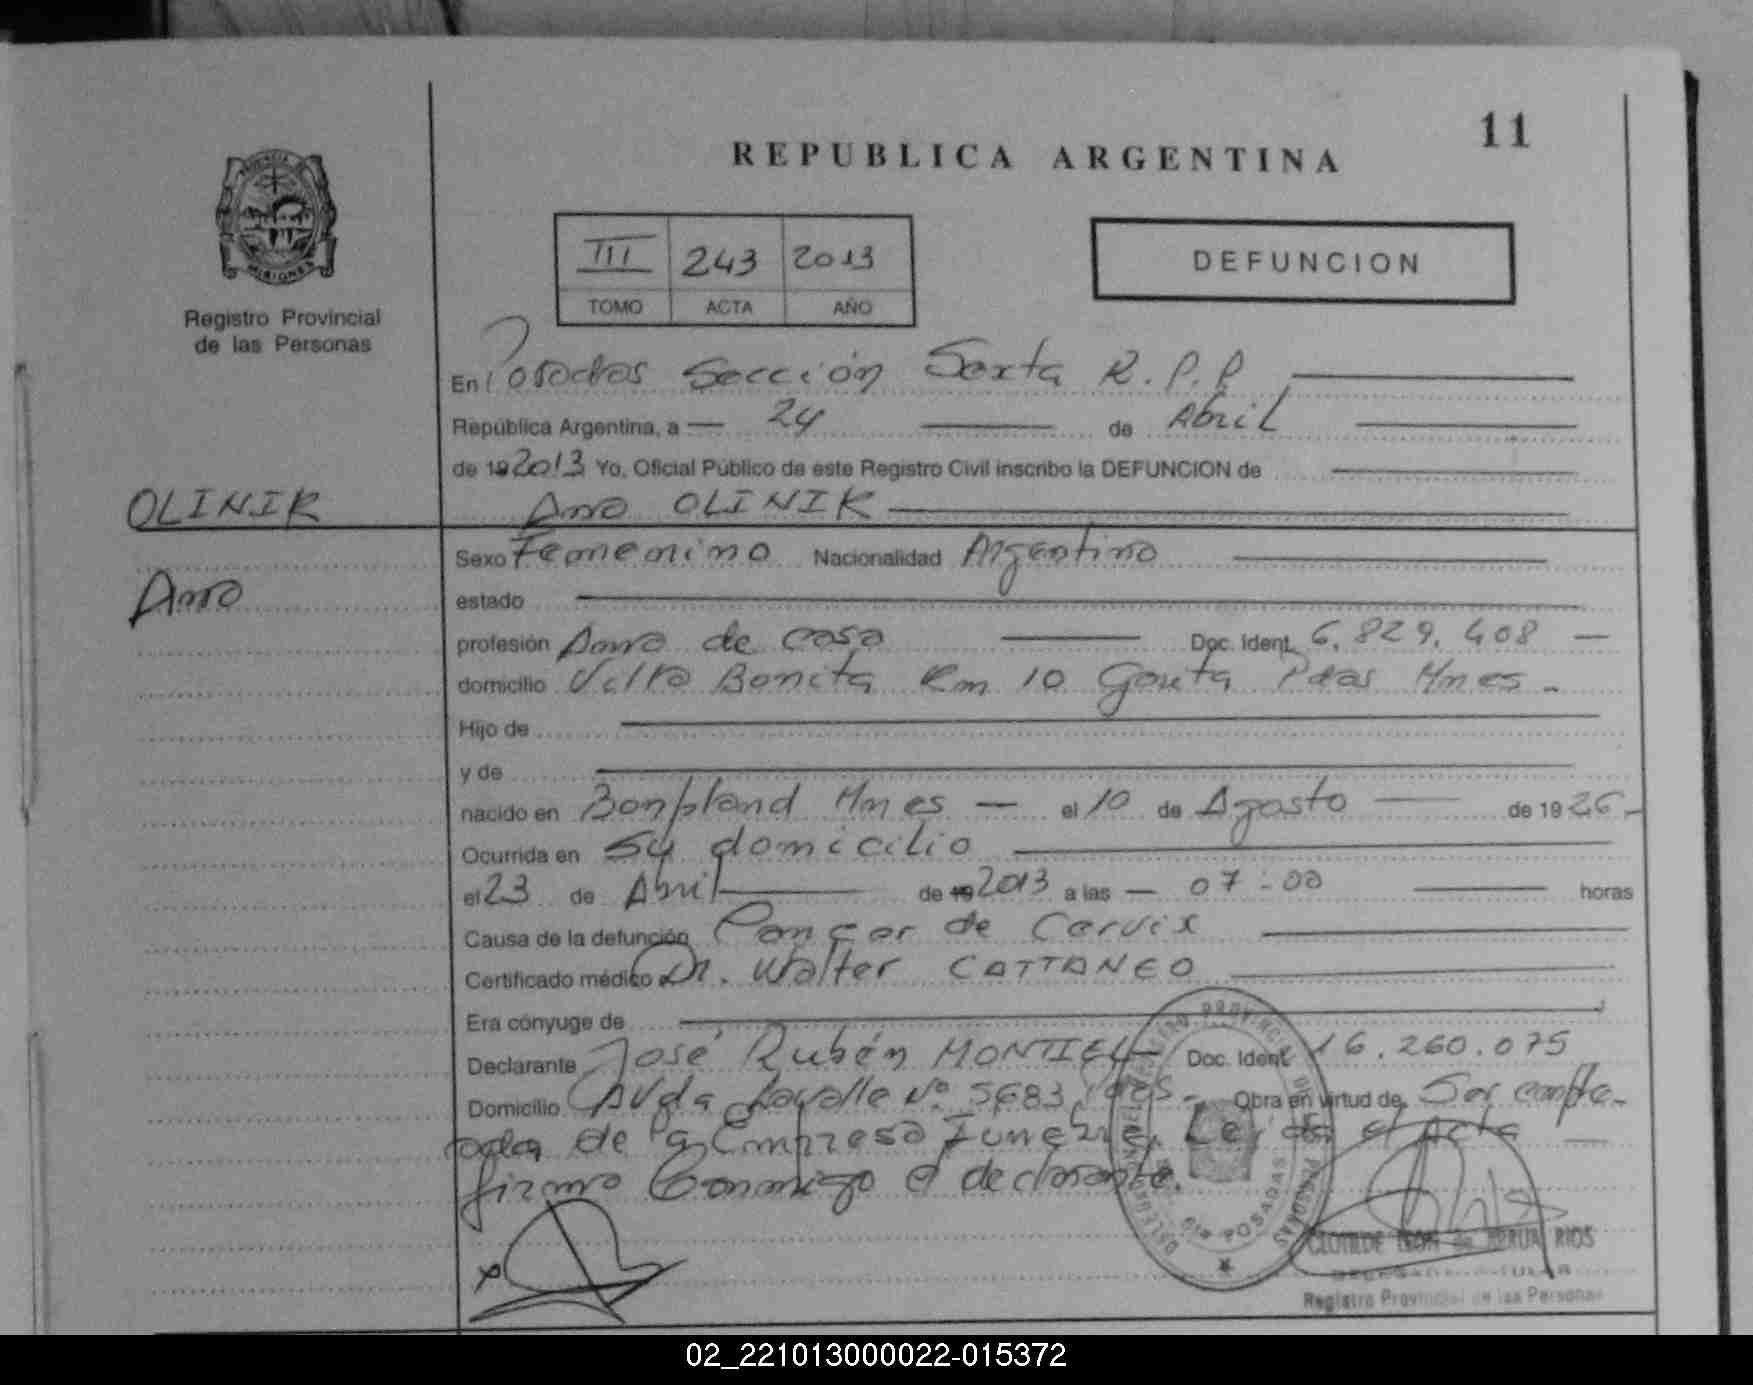 11
REPUBLICA ARGENTINA
MISIONES
Registro Provincial
de las Personas
III 243 2013
TOMO ACTA AÑO
DEFUNCION
En Posadas Sección Sexta R.P.P
República Argentina, a 24 de Abril
de 19 2013 Yo, Oficial Público de este Registro Civil inscribo la DEFUNCION de
OLINIK
Ana OLINIK
Ana
Sexo Femenino Nacionalidad Argentina
estado
profesión Ama de casa Doc. Ident. 6.829.408
domicilio Villa Bonita Km 10 Garita Pdas Mnes.
Hijo de
y de
nacido en Bonpland Mnes el 10 de Agosto de 19 26
Ocurrida en su domicilio
el 23 de Abril de 19 2013 a las 07-00 horas
Causa de la defunción Cancer de Cervix
Certificado médico Dr. Walter CATTANEO
Era cónyuge de
Declarante José Rubén MONTIEL Doc. Ident. 16.260.075
Domicilio Avda Lavalle Nº 5683 Pdas. Obra en virtud de Ser emplea-
do de la Empresa Funebre. Leida el Acta
firma Conmigo el declarante.
X
REGISTRO PROVINCIAL DE LAS PERSONAS
POSADAS
CLOTILDE de RIOS
Registro Provincial de las Personas
02_221013000022-015372